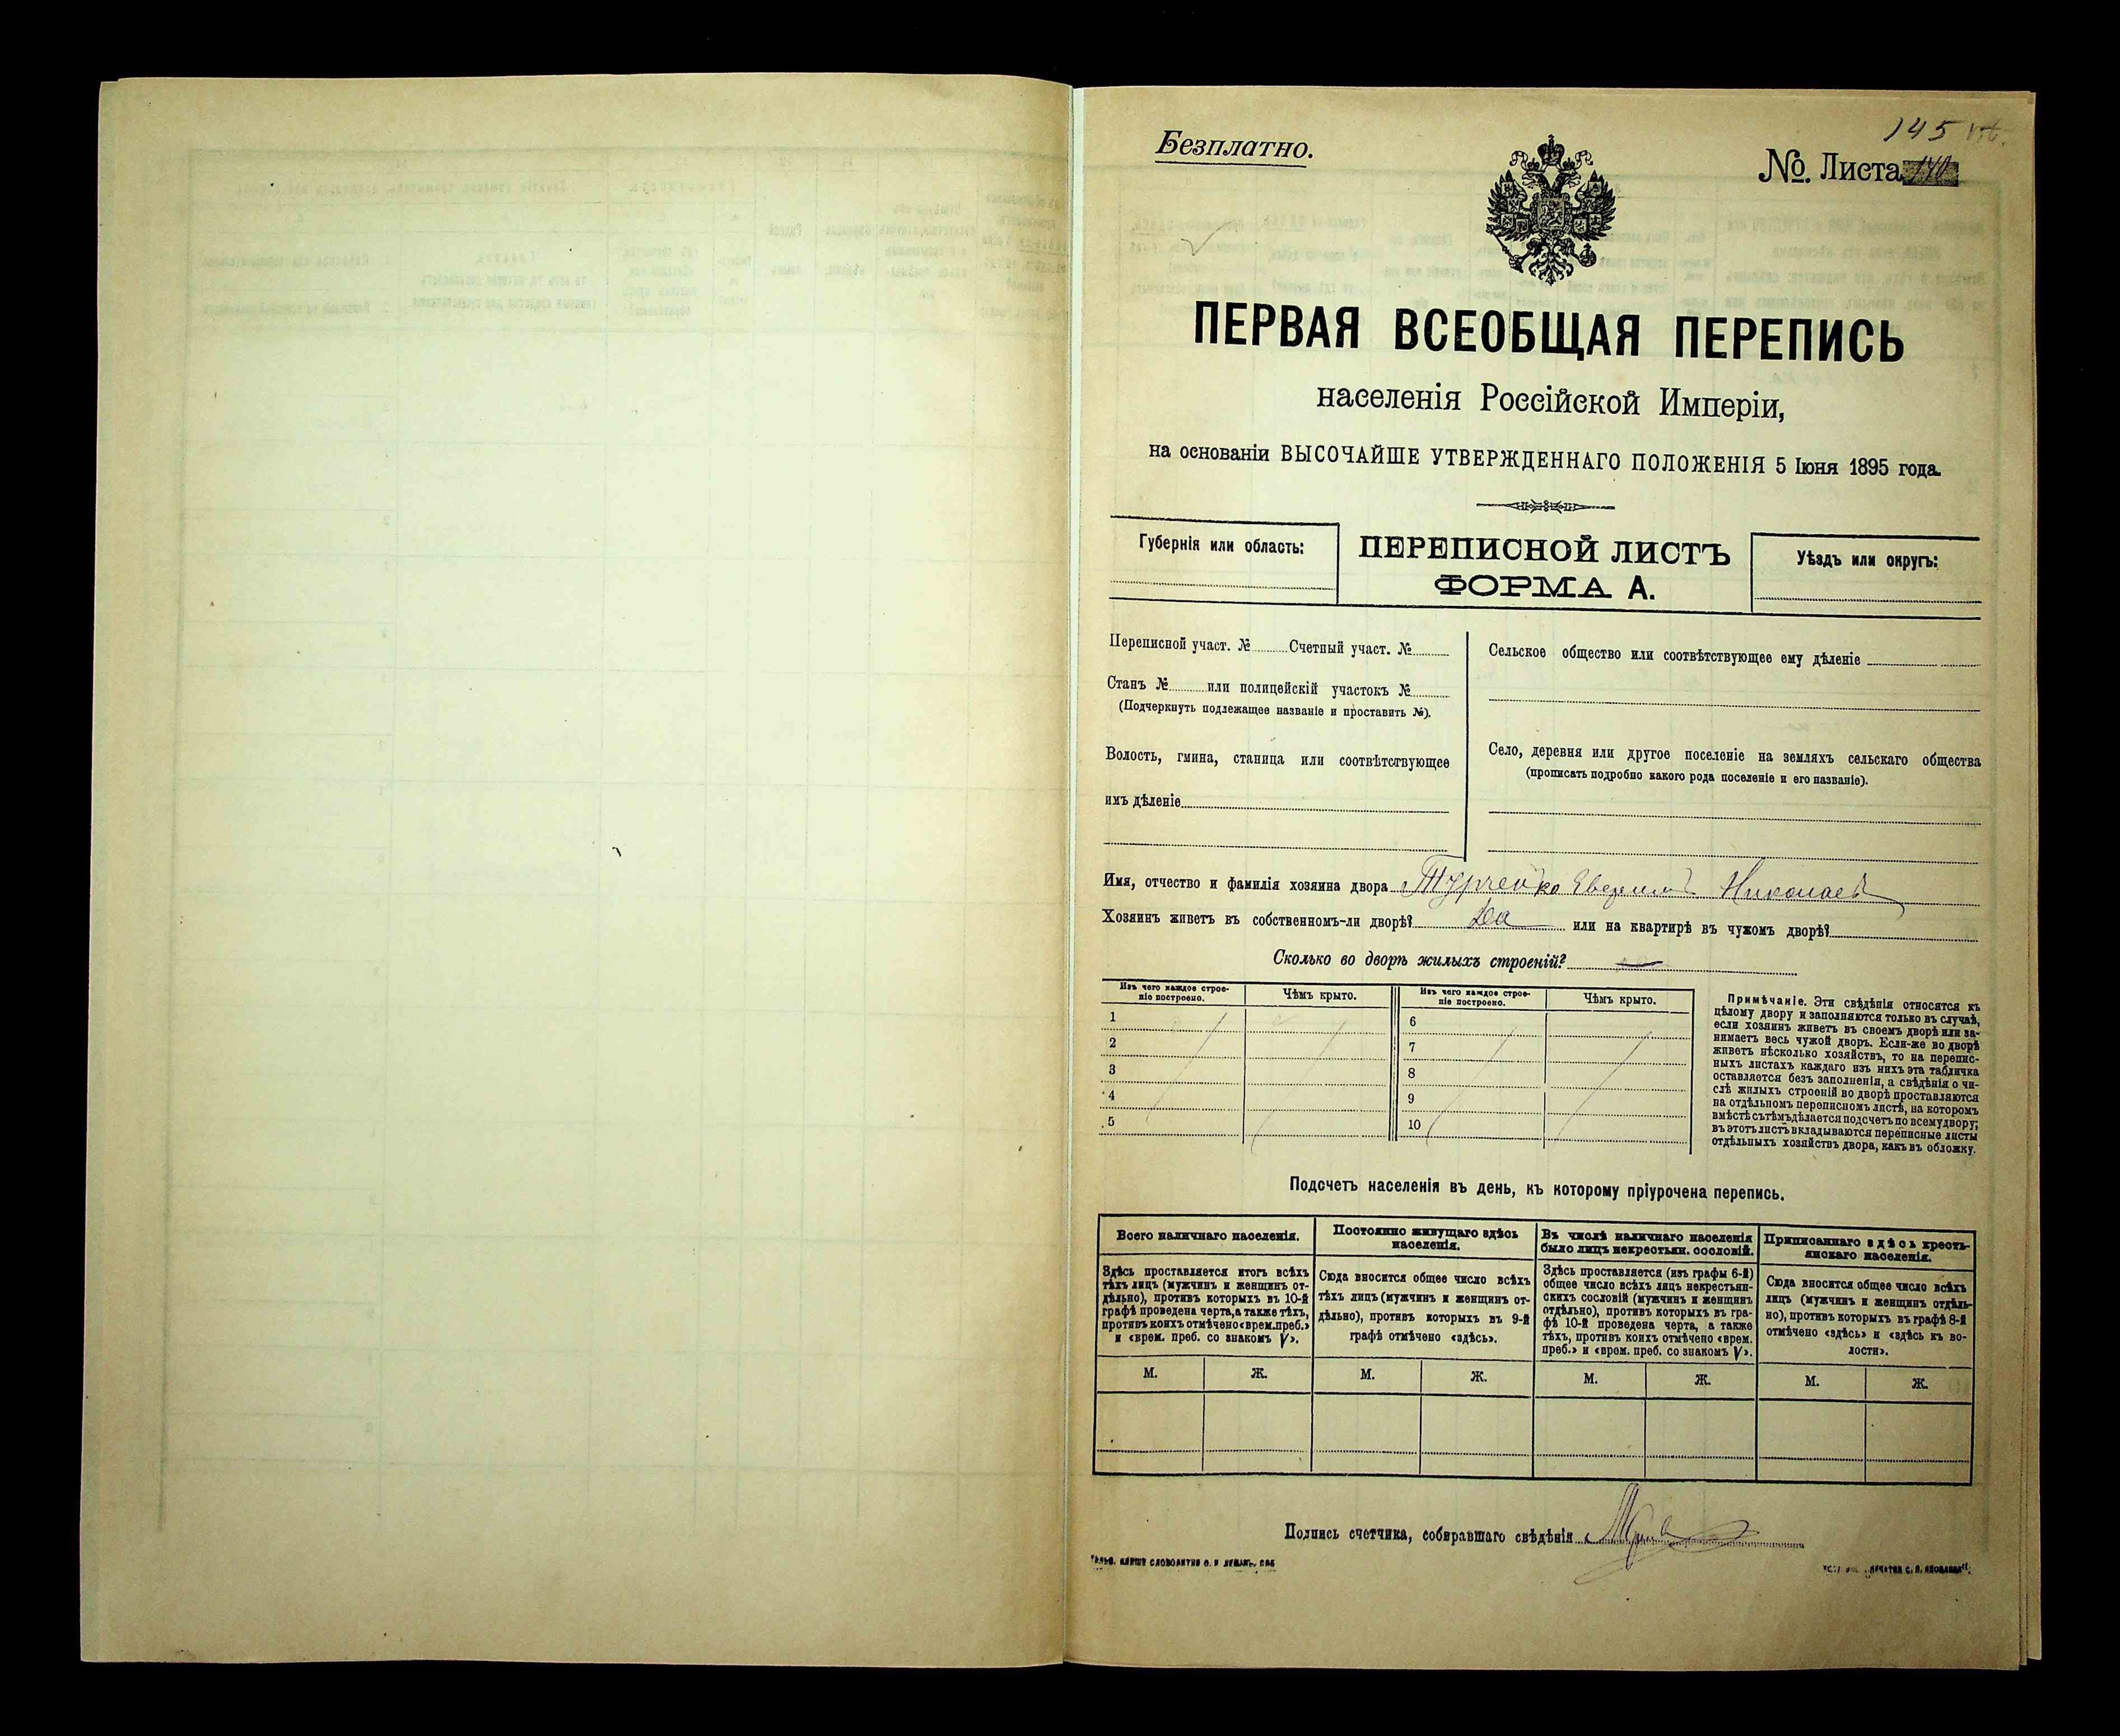 145
Безплатно.
№ Листа 140
ПЕРВАЯ ВСЕОБЩАЯ ПЕРЕПИСЬ
населенія Россійской Имперіи,
на основаніи ВЫСОЧАЙШЕ УТВЕРЖДЕННАГО ПОЛОЖЕНІЯ 5 Іюня 1895 года.
Губернія или область:
ПЕРЕПИСНОЙ ЛИСТЪ
ФОРМА А.
Уѣздъ или округъ:
Переписной участ. № Счетный участ. №
Станъ № или полицейскій участокъ №
(Подчеркнуть подлежащее названіе и проставить №).
Волость, гмина, станица или соотвѣтствующее
имъ дѣленіе
Сельское общество или соотвѣтствующее ему дѣленіе
Село, деревня или другое поселеніе на земляхъ сельскаго общества
(прописать подробно какого рода поселеніе и его названіе).
Имя, отчество и фамилія хозяина двора Николаев
Хозяинъ живетъ въ собственномъ-ли дворѣ? Да или на квартирѣ въ чужомъ дворѣ?
Сколько во дворѣ жилыхъ строеній?
Изъ чего каждое строе-
ніе построено.
Чѣмъ крыто.
Изъ чего каждое строе-
ніе построено.
Чѣмъ крыто.
1
2
3
4
5
6
7
8
9
10
Примѣчаніе. Эти свѣдѣнія относятся къ
цѣлому двору и заполняются только въ случаѣ,
если хозяинъ живетъ въ своемъ дворѣ или за-
нимаетъ весь чужой дворъ. Если-же во дворѣ
живетъ нѣсколько хозяйствъ, то на перепис-
ныхъ листахъ каждаго изъ нихъ эта табличка
оставляется безъ заполненія, а свѣдѣнія о чи-
слѣ жилыхъ строеній во дворѣ проставляются
на отдѣльномъ переписномъ листѣ, на которомъ
вмѣстѣ съ тѣмъ дѣлается подсчетъ по всему двору;
въ этотъ листъ вкладываются переписные листы
отдѣльныхъ хозяйствъ двора, какъ въ обложку.
Подсчетъ населенія въ день, къ которому пріурочена перепись.
Всего наличнаго населенія.
Здѣсь проставляется итогъ всѣхъ
тѣхъ лицъ (мужчинъ и женщинъ от-
дѣльно), противъ которыхъ въ 10-й
графѣ проведена черта, а также тѣхъ,
противъ коихъ отмѣчено «врем. преб.»
и «врем. преб. со знакомъ V».
М.
Ж.
Постоянно живущаго здѣсь
населенія.
Сюда вносится общее число всѣхъ
тѣхъ лицъ (мужчинъ и женщинъ от-
дѣльно), противъ которыхъ въ 9-й
графѣ отмѣчено «здѣсь».
М.
Ж.
Въ числѣ наличнаго населенія
было лицъ некрестьян. сословій.
Здѣсь проставляется (изъ графы 6-й)
общее число всѣхъ лицъ некрестьян-
скихъ сословій (мужчинъ и женщинъ
отдѣльно), противъ которыхъ въ гра-
фѣ 10-й проведена черта, а также
тѣхъ, противъ коихъ отмѣчено «врем.
преб.» и «врем. преб. со знакомъ V».
М.
Ж.
Приписаннаго здѣсь кресть-
янскаго населенія.
Сюда вносится общее число всѣхъ
лицъ (мужчинъ и женщинъ отдѣль-
но), противъ которыхъ въ графѣ 8-й
отмѣчено «здѣсь» и «здѣсь къ во-
лости».
М.
Ж.
Подпись счетчика, собиравшаго свѣдѣнія